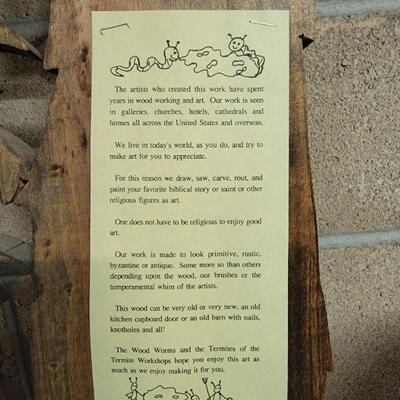 The artists who created this work have spent
years in wood working and art. Our work is seen
in galleries, churches, hotels, cathedrals and
homes all across the United States and overseas.
We live in today's world, as you do, and try to
make art for you to appreciate.
For this reason we draw, saw, carve, rout, and
paint your favorite biblical story or saint or other
religious figures as art.
One does not have to be religious to enjoy good
art.
Our work is made to look primitive, rustic,
byzantine or antique. Some more so than others
depending upon the wood, our brushes or the
temperamental whim of the artists.
This wood can be very old or very new, an old
kitchen cupboard door or an old barn with nails,
knotholes and all!
The Wood Worms and the Termites of the
Termite Workshops hope you enjoy this art as
much as we enjoy making it for you.